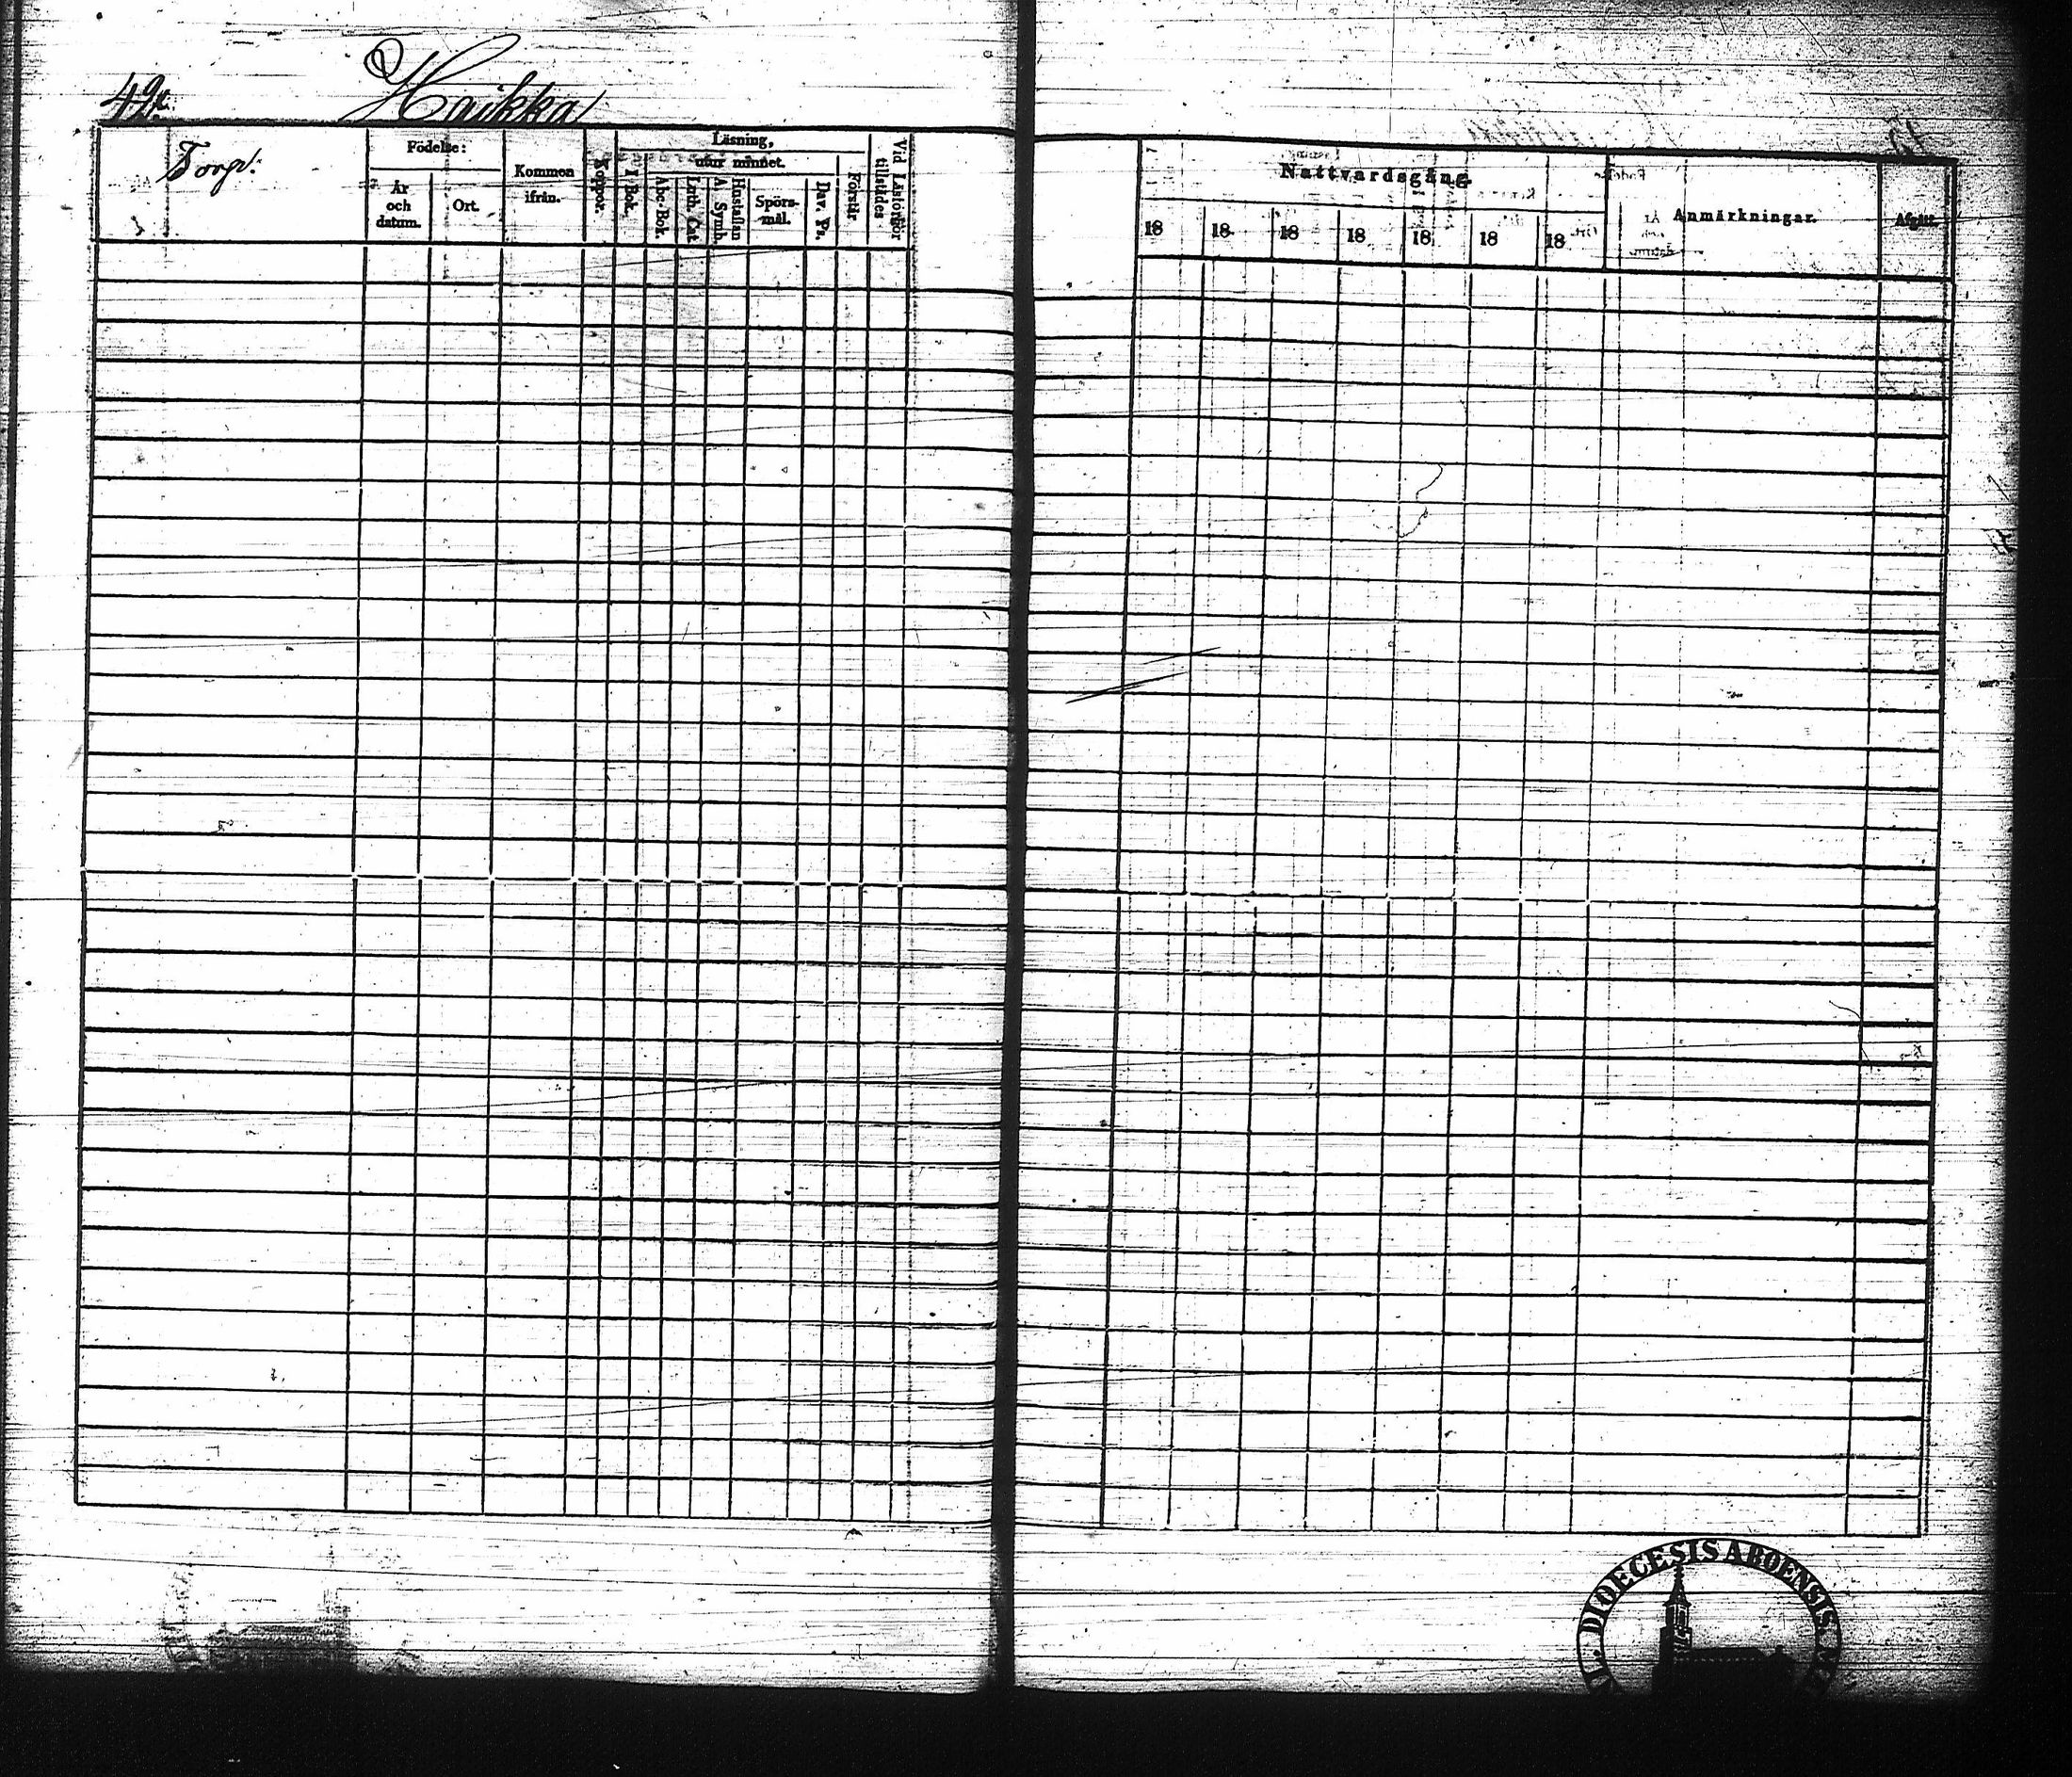 49.
Haikka
Torp:
Födelse:
År och datum.
Ort.
Kommen ifrån.
Koppor.
Läsning,
I Bok.
utur minnet.
Abc-Bok.
Luth. Cat.
Hustaflan
A. Symb.
Spörs-
mål.
Dav. Ps.
Förstår.
Vid Läsförhör
tillstädes
Nattvardsgång.
18 18 18 18 18 18 18
Anmärkningar.
Afgått.
DIOECESIS ABOENSIS